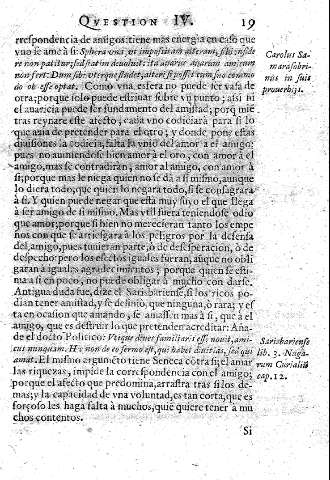 QVESTION IV. 19
rrespondencia de amigos: tiene mas energia en caso que
vno se ame à si:
Carolus Sa-
nos in suis
prouerbijs.
do ob esse optat. Como vna esfera no puede ser vasa de
otra; porque solo puede estriuar sobre vn punto; assi ni
el auaricia puede ser fundamento del amistad; porq̃ miẽ
tras reynare este afecto, cada vno codiciarà para si lo
que auia de pretender para el otro; y donde pone estas
diuisiones la codicia, falta la vnió del amor a el amigo:
pues no auniendose bien amor à el oro, con amor à el
amigo, mas se contradiràn, amor al amigo, con amor à
si; porque mas le niega quien no se dà a si mismo, aunque
lo diera todo; que quien lo negara todo, si se consagrara
à si. Y quien puede negar que està muy suyo, el que llega
à ser amigo de si mismo. Mas vtil fuera teniendose odio
que amor; porque si bien no merecieran tanto los empe
ños con que se arriesgara à los peligros por la defensa
del amigo, pues tuuieran parte, ò de desesperacion, ò de
despecho: pero los efectos iguales fueran, aunque no obli
garan à iguales agradecimientos; porque quien se esti-
ma à si en poco, no puede obligar à mucho con darse.
Antigua duda fue, dize el Sarisbariense, si los ricos po
dian tener amistad, y se definiò, que ninguna, ò rara; y es
ta en ocasion que amando, se amassen mas à si, que à el
amigo, que es destruir lo que pretenden acreditar: Aña-
de el docto Politico:
Sarisbariense
lib. 3. Nuga-
rum Curialiũ
cap. 12.
amat. El mismo argumento tiene Seneca contra si; el amar
las riquezas, impide la correspondencia con el amigo;
porque el afecto que predomina, arrastra tras si los de-
mas; y la capacidad de vna voluntad, es tan corta, que es
forçoso les haga falta à muchos, quie quiere tener a mu
chos contentos.
Si